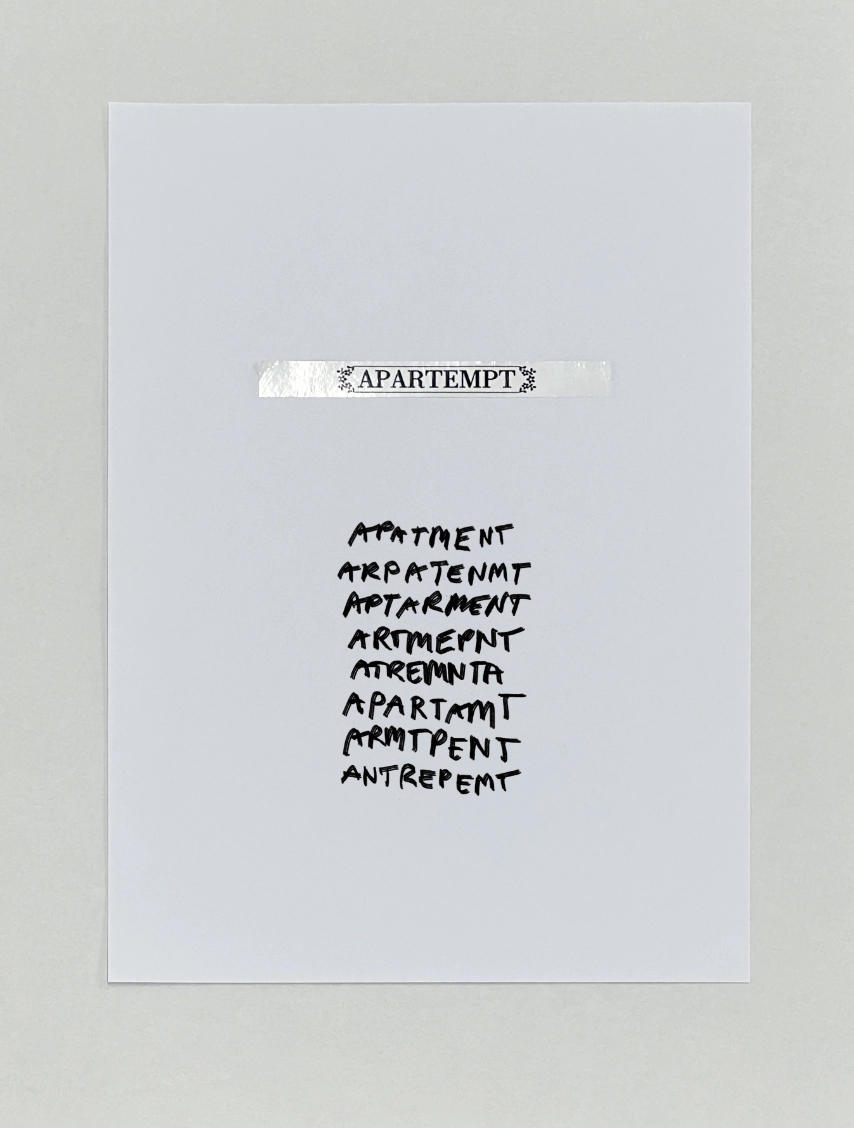 APARTEMPT
APATMENT
ARPATENMT
APTARMENT
ARTMEPNT
ATREMNTA
APARTAMT
ARMTPENT
ANTREPEMT